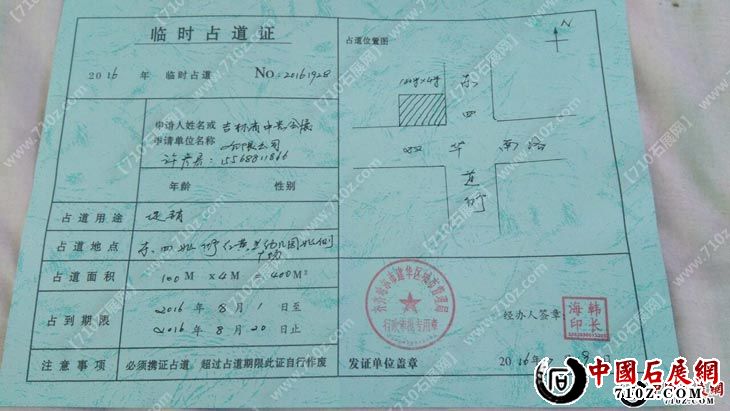 临时占道证
2016 年 临时占道 NO.20161928
申请人姓名或
申请单位名称
吉林省中安会展
有限公司
15568811866
年龄 性别
占道用途 促销
占道地点
占道面积 100M x4M = 400M²
占到期限
2016 年 8 月 1 日至
2016 年 8 月 20 日止
注意事项 必须携证占道，超过占道期限此证自行作废
占道位置图
N
东四道街
华南路
齐齐哈尔市建华区城市管理局
行政审批专用章
经办人签章
韩长海印
发证单位盖章 2016年 8月
中國石展網
www.710z.com
【710石展网】www.710z.com